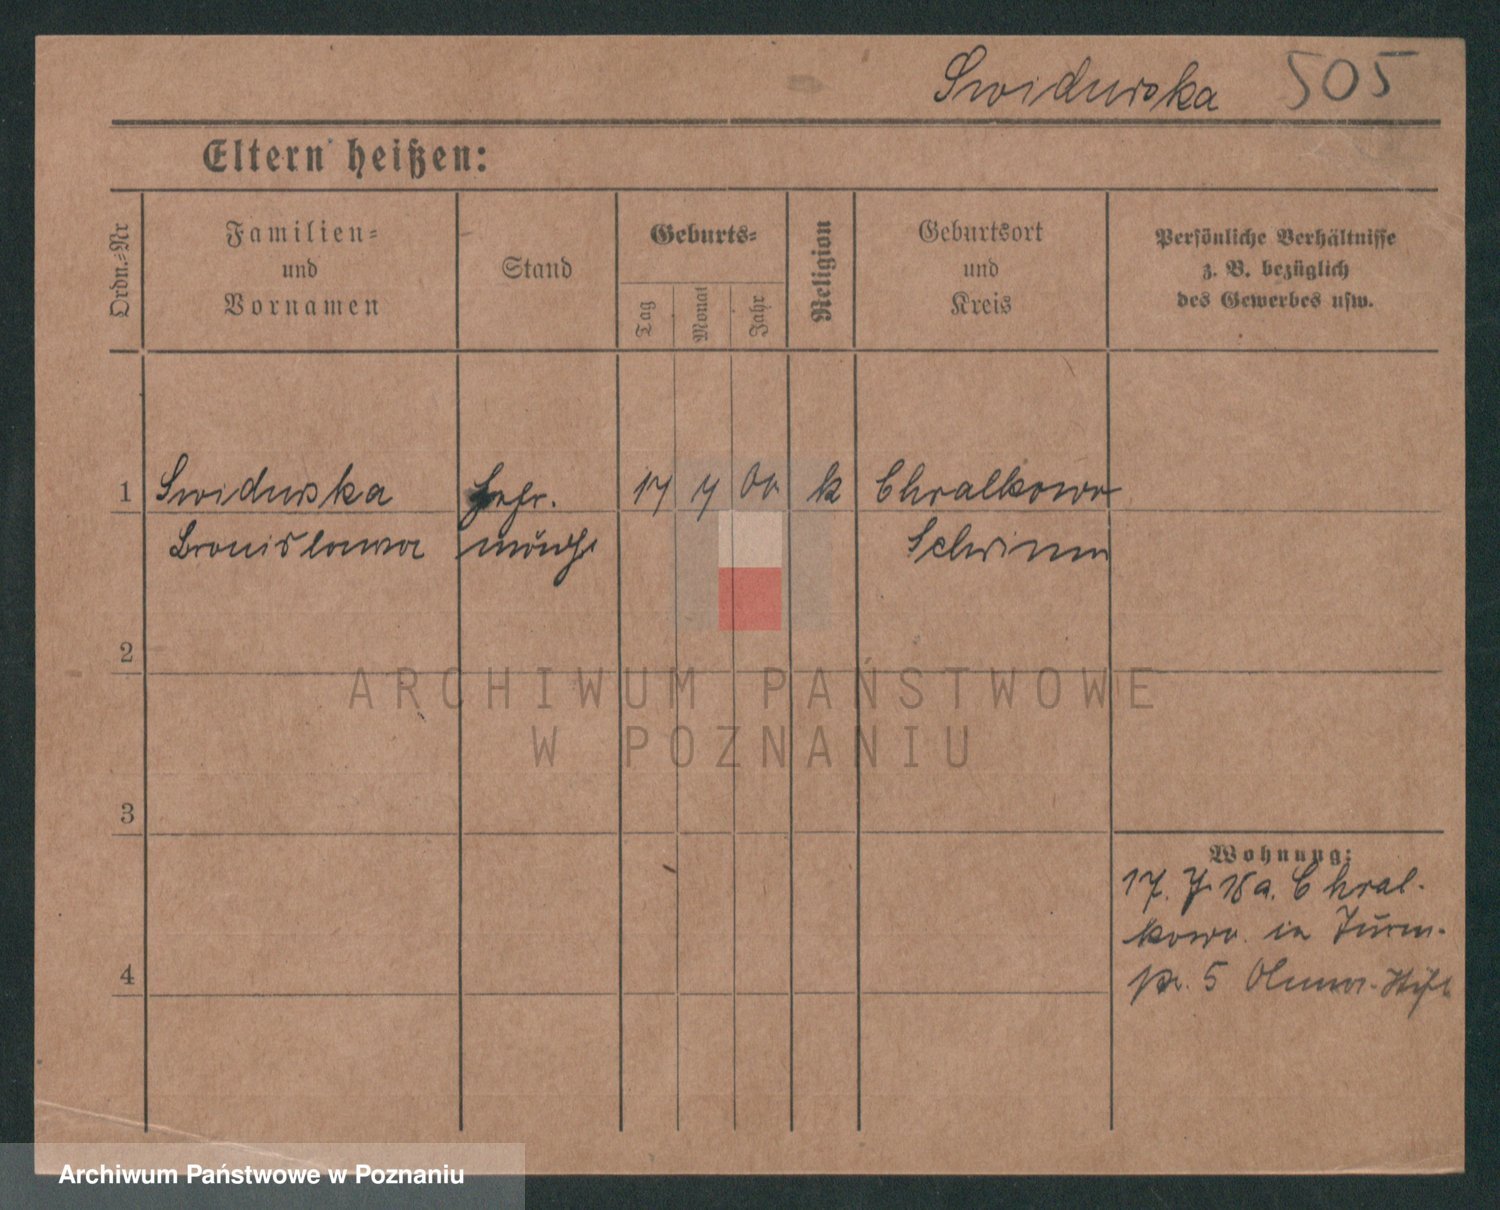 Swidurska 505
Eltern heißen:
Ordn.=Nr
Familien=
und
Vornamen
Stand
Geburts=
Tag
Monat
Jahr
Religion
Geburtsort
und
Kreis
Persönliche Verhältnisse
z. B. bezüglich
des Gewerbes usw.
1 Swidurska 17 7 00 k Chralkowo
Bronislawa
2
3
4
Wohnung:
17. 7. 18 a. Chral-
kowo in Turm-
str. 5
ARCHIWUM PAŃSTWOWE
W POZNANIU
Archiwum Państwowe w Poznaniu